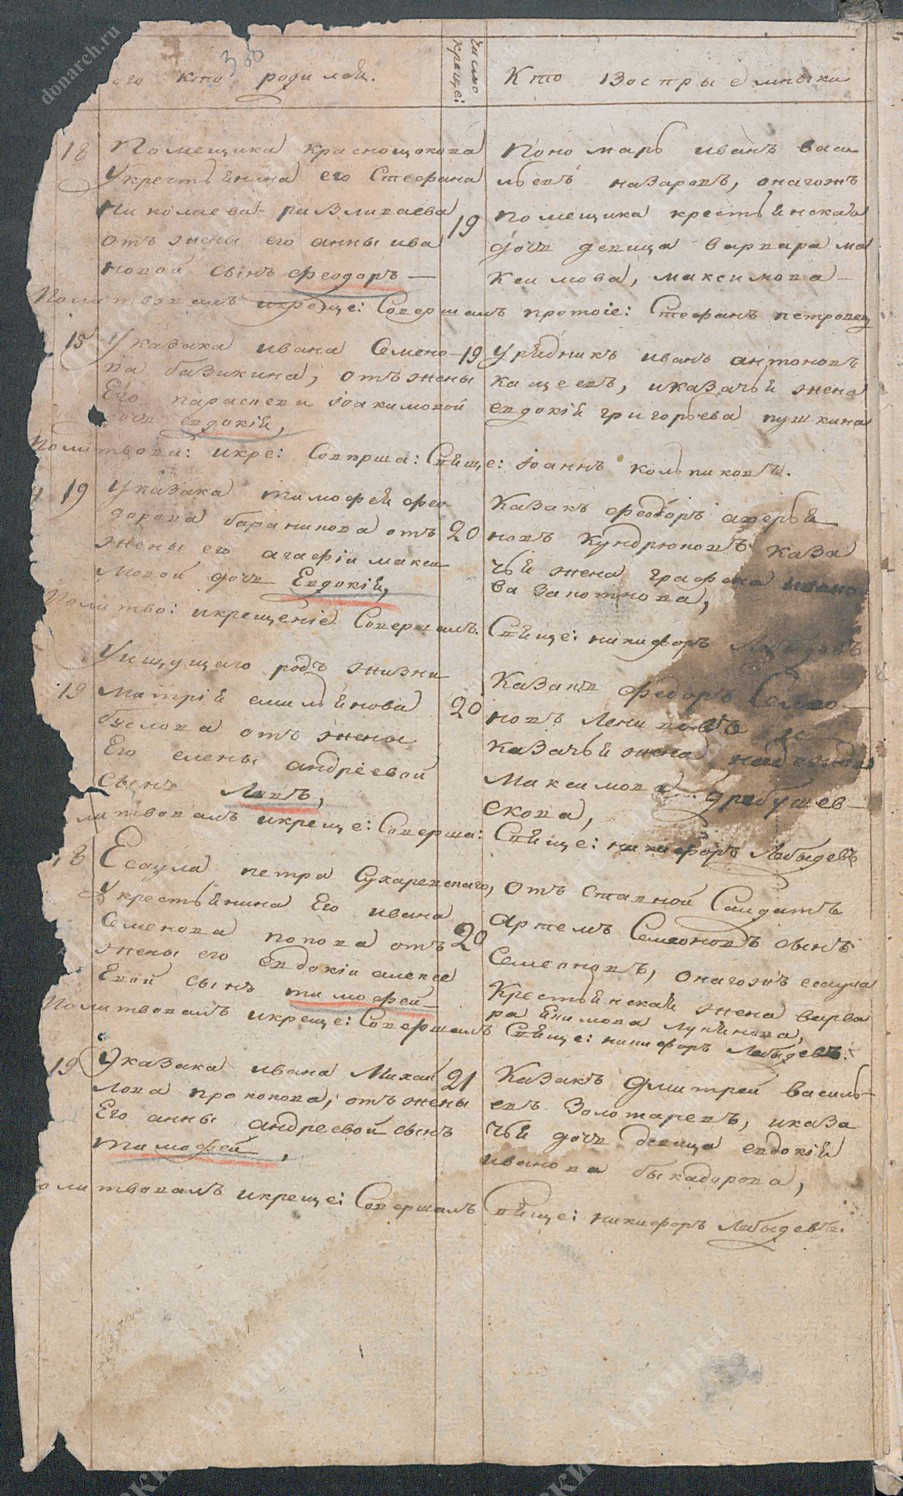 donarch.ru
го кто родилси.
число креще:
Кто Востприемники
18 Помещика краснощокова
Укрестьянина его Стефана
николаева
отъ жены его анны ива
новой сынъ феодоръ
19
Пономарь иванъ васи
льевъ назаровъ, онагожъ
помещика крестьянская
дочь девица варвара ма
ксимова, максимова
молитвовалъ икреще: Совершалъ протоіе: Стефанъ петровец
15 Указака ивана Семено
ва базикина, отъ жены
Его парасковеи Іоакимовой
дочь евдокія,
19
Урядникъ иванъ антоновъ
кащеевъ, иказачья жена
евдокія григорьева пушкина
молитвова: икре: Соверша: Свяще: Іоаннъ колпиковъ.
19 Указака тимофея фео
дорова бараникова отъ
жены его агафіи макси
мовой дочь Евдокія,
20
Казакъ феодоръ
новъ Кундрюковъ каза
чья жена ивано
ва
молитво: икрещеніе Совершалъ. Свяще: никифоръ Лебедевъ
Уищущаго родъ жизни
19 матвія емильянова
буслова отъ жены
Его елены андреевой
Сынъ Левъ,
20
Казакъ федоръ Семо
новъ
казачья жена
максимова
скова,
литвовалъ икреще: Соверша: Свяще: никифоръ Лебедевъ
18 Есаула петра Сухаревскаго,
Укрестьянина Его ивана
Семенова попова отъ
жены его евдокіи алексе
Евой сынъ тимофей
20
отъ ставной Салдатъ
Артемъ Семеоновъ сынъ
Семеоновъ, онагожъ есаула
Крестьянская жена варва
ра
молитвовалъ икреще: Совершалъ Свяще: никифоръ Лебедевъ.
19 Указака ивана Михай
лова прокопова, отъ жены
Его анны андреевой сынъ
тимофей,
21
Казакъ дмитрей василь
евъ Золотаревъ, иказа
чья дочь девица евдокія
иванова быкадорова,
олитвовалъ икреще: Совершалъ Свяще: никифоръ Лебедевъ.